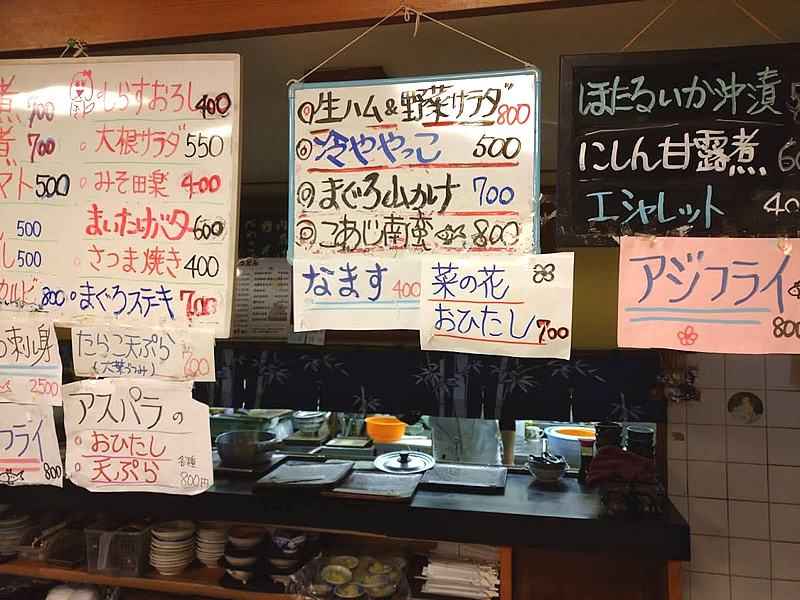 煮 700
煮 700
マト 500
500
し 500
カルビ 800
しらすおろし 400
大根サラダ 550
みそ田楽 400
まいたけバター 600
さつま焼き 400
まぐろステキ 700
刺身
2500
フライ
800
たらこ天ぷら
(大葉つつみ)
700
アスパラの
おひたし
天ぷら
各種
800円
生ハム&野菜サラダ 800
冷ややっこ 500
まぐろ山かけ 700
こあじ南蛮 800
なます 400
菜の花
おひたし 700
ほたるいか沖漬
にしん甘露煮
エシャレット 40
アジフライ
800